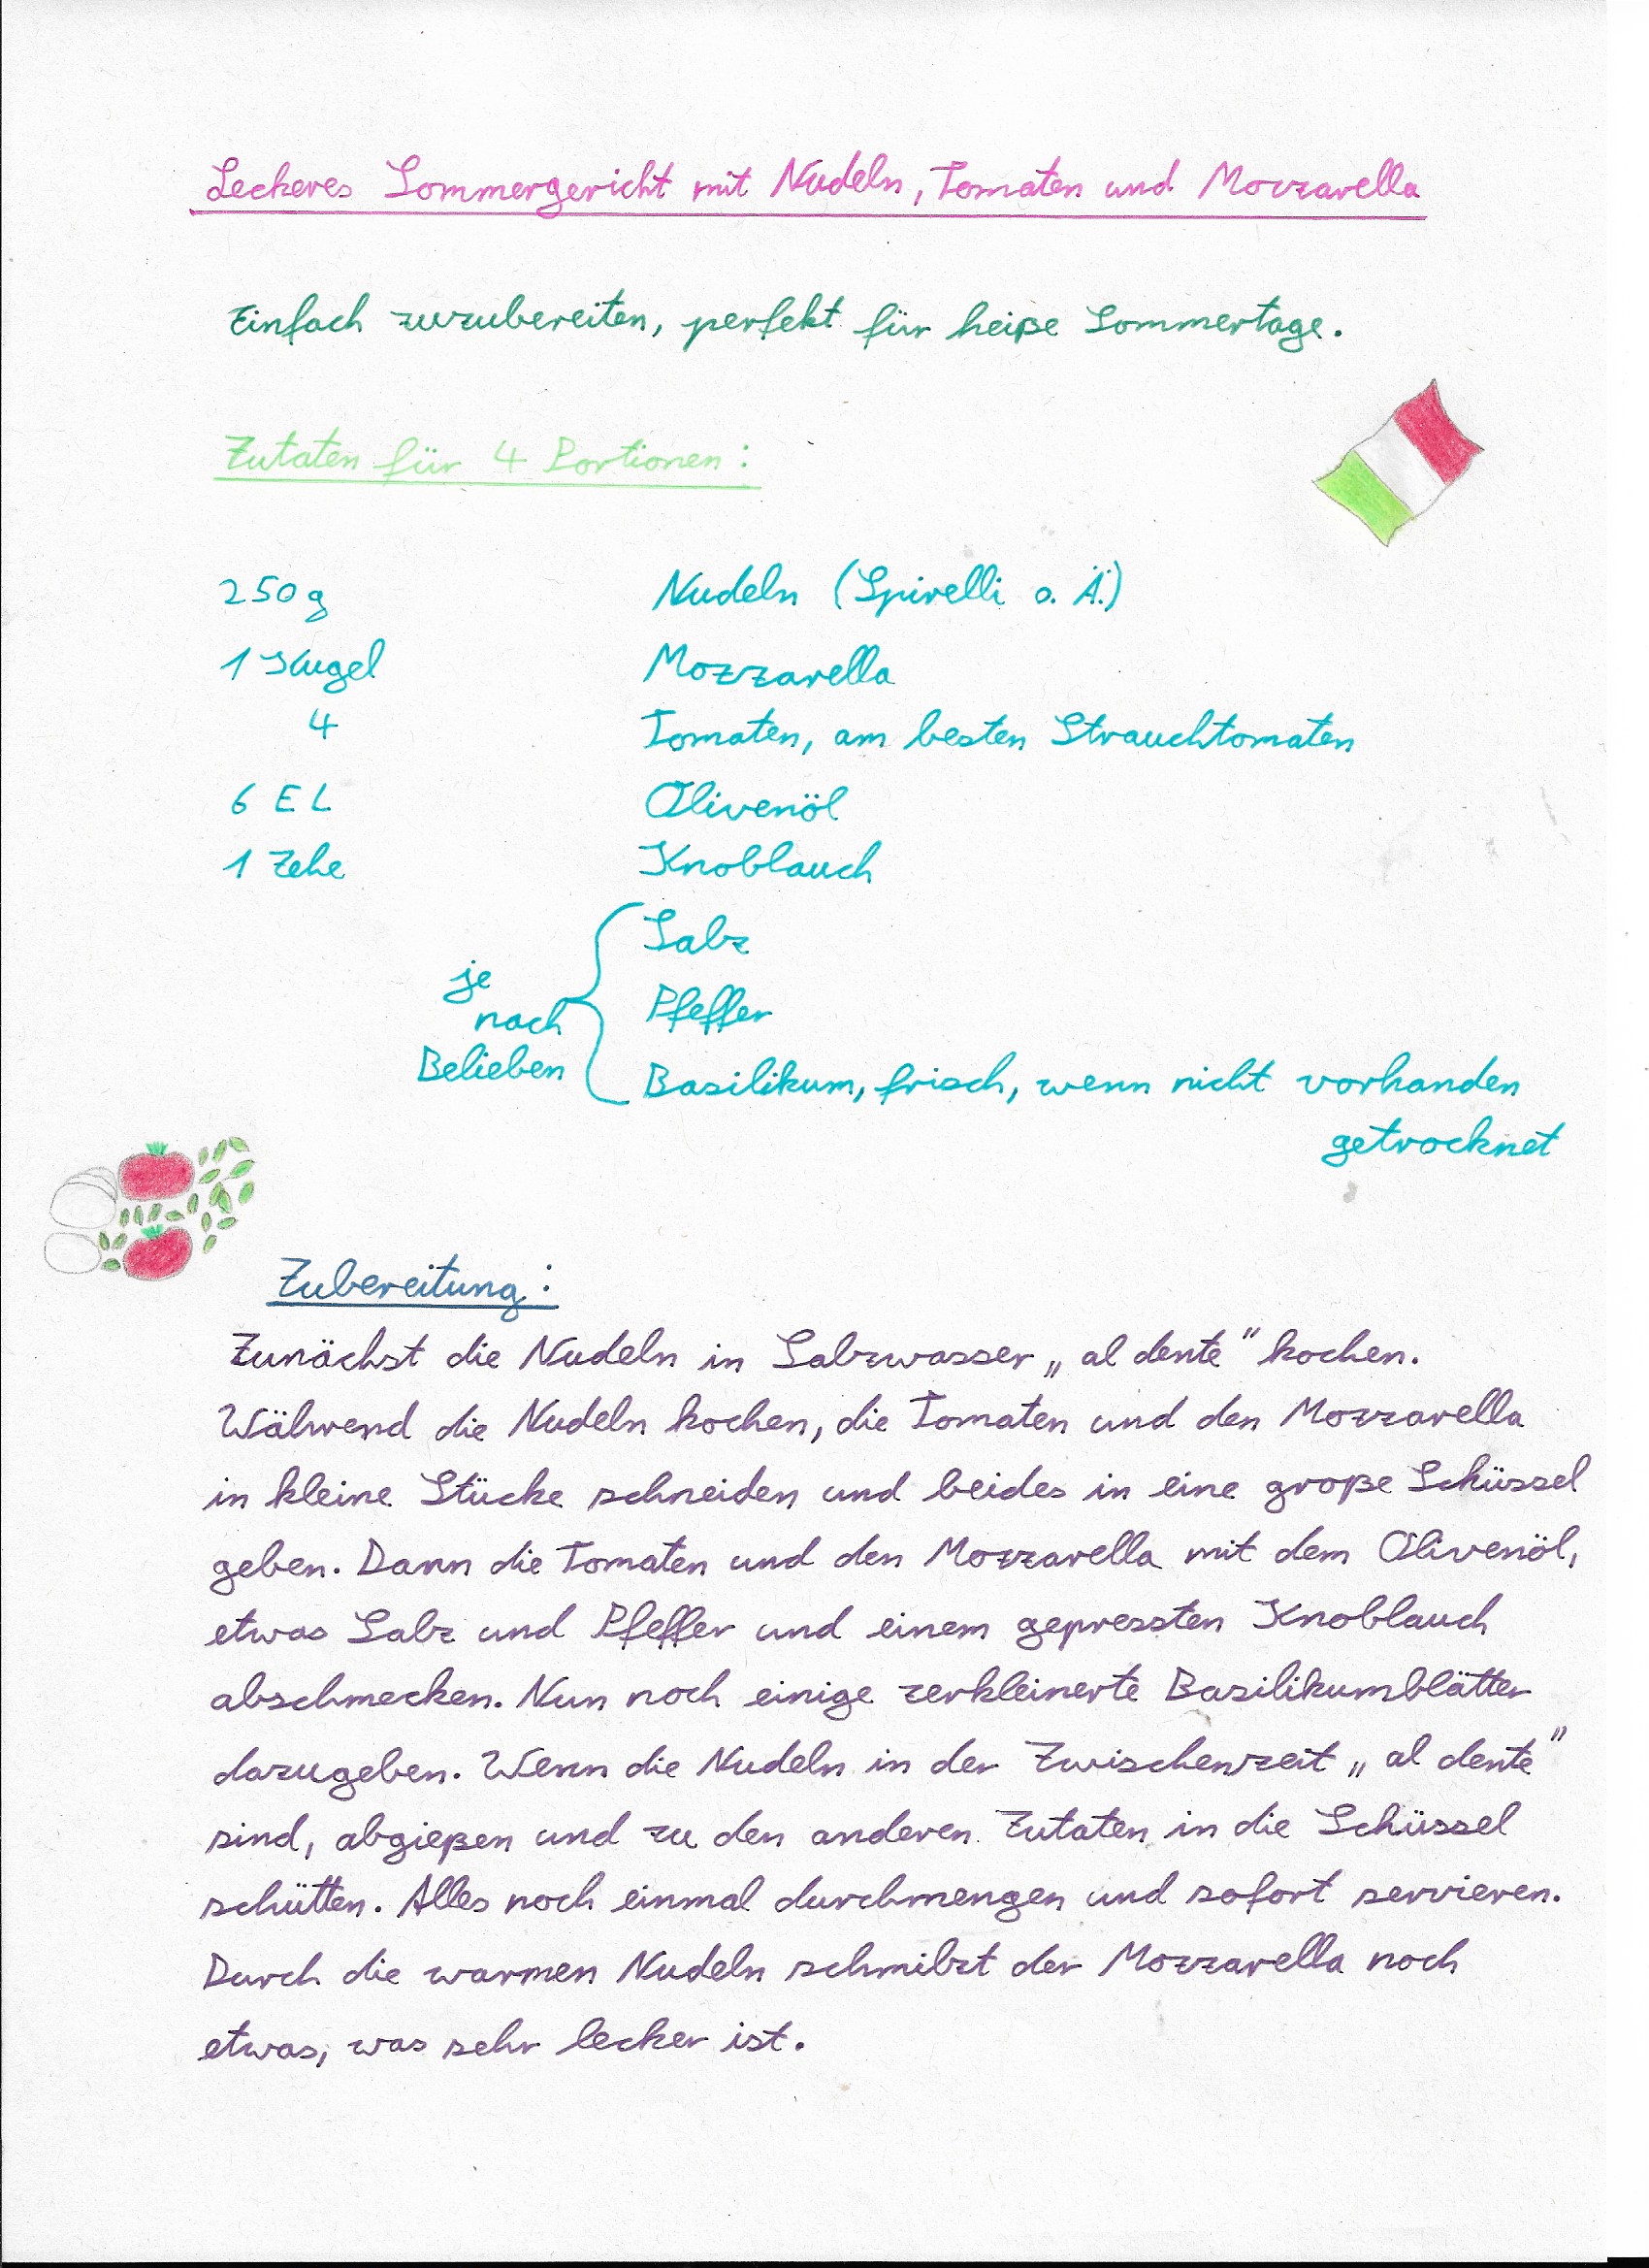 Leckeres Sommergericht mit Nudeln, Tomaten und Mozzarella
Einfach zuzubereiten, perfekt für heiße Sommertage.
Zutaten für 4 Portionen:
250 g Nudeln (Spirelli o. Ä.)
1 Kugel Mozzarella
4 Tomaten, am besten Strauchtomaten
6 EL Olivenöl
1 Zehe Knoblauch
je nach Belieben
Salz
Pfeffer
Basilikum, frisch, wenn nicht vorhanden
getrocknet
Zubereitung:
Zunächst die Nudeln in Salzwasser „al dente" kochen.
Während die Nudeln kochen, die Tomaten und den Mozzarella
in kleine Stücke schneiden und beides in eine große Schüssel
geben. Dann die Tomaten und den Mozzarella mit dem Olivenöl,
etwas Salz und Pfeffer und einem gepressten Knoblauch
abschmecken. Nun noch einige zerkleinerte Basilikumblätter
dazugeben. Wenn die Nudeln in der Zwischenzeit „al dente"
sind, abgießen und zu den anderen Zutaten in die Schüssel
schütten. Alles noch einmal durchmengen und sofort servieren.
Durch die warmen Nudeln schmilzt der Mozzarella noch
etwas, was sehr lecker ist.